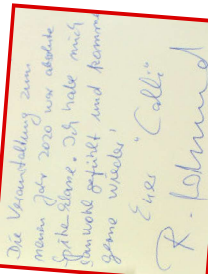 Die Veranstaltung zum
neuen Jahr 2020 war absolute
Spitze Klasse. Ich habe mich
sauwohl gefühlt und komme
gerne wieder!
Euer "Calli"
R.